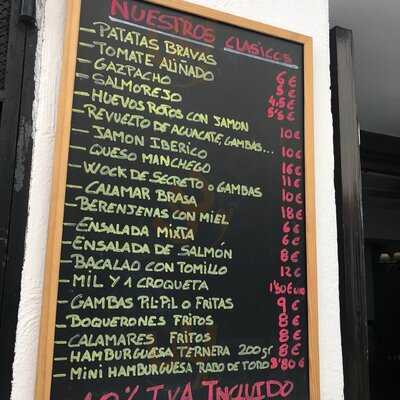 NUESTROS CLASICOS
- PATATAS BRAVAS 6€
- TOMATE ALIÑADO 5€
- GAZPACHO 4,5€
- SALMOREJO 5'5€
- HUEVOS ROTOS CON JAMON 10€
- REVUELTO DE AGUACATE, GAMBAS... 10€
- JAMON IBERICO 16€
- QUESO MANCHEGO 11€
- WOCK DE SECRETO O GAMBAS 10€
- CALAMAR BRASA 18€
- BERENJENAS CON MIEL 6€
- ENSALADA MIXTA 6€
- ENSALADA DE SALMÓN 8€
- BACALAO CON TOMILLO 12€
- MIL Y 1 CROQUETA 1'80€
- GAMBAS PIL-PIL O FRITAS 9€
- BOQUERONES FRITOS 8€
- CALAMARES FRITOS 8€
- HAMBURGUESA TERNERA 200gr 8€
- MINI HAMBURGUESA RABO DE TORO 3'80€
10% IVA INCLUIDO